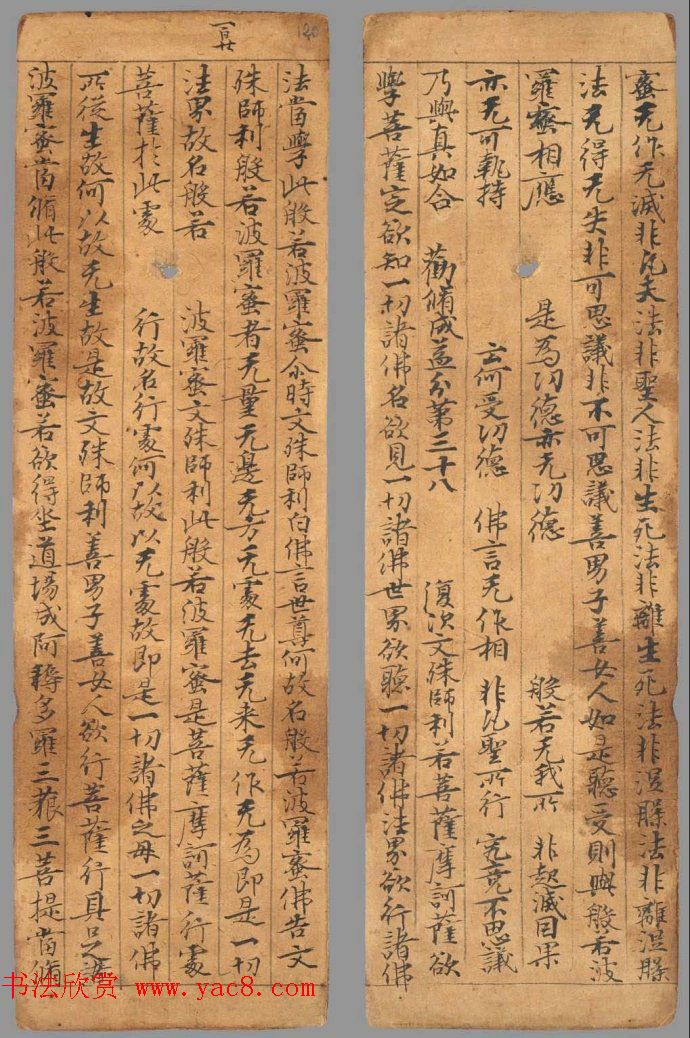 蜜无作无滅非凡夫法非聖人法非生死法非離生死法非涅槃法非離涅槃
法无得无失非可思議非不可思議善男子善女人如是聽受則與般若波
羅蜜相應 是為功德亦无功德 般若无我所 非起滅因果
亦无可執持 云何受功德 佛言无作相 非凡聖所行 究竟不思議
乃與真如合 勸脩成益分第三十八 復次文殊師利若菩薩摩訶薩欲
學菩薩定欲知一切諸佛名欲見一切諸佛世界欲聽一切諸佛法界欲行諸佛
120
法當學此般若波羅蜜尒時文殊師利白佛言世尊何故名般若波羅蜜佛告文
殊師利般若波羅蜜者无量无邊无方无處无去无来无作无為即是一切
法界故名般若 波羅蜜文殊師利此般若波羅蜜是菩薩摩訶薩行處
菩薩於此處 行故名行處何以故以无處故即是一切諸佛之母一切諸佛
所從生故何以故无生故是故文殊師利善男子善女人欲行菩薩行具足諸
波羅蜜當脩此般若波羅蜜若欲得坐道場成阿耨多羅三藐三菩提當脩
书法欣赏 www.yac8.com